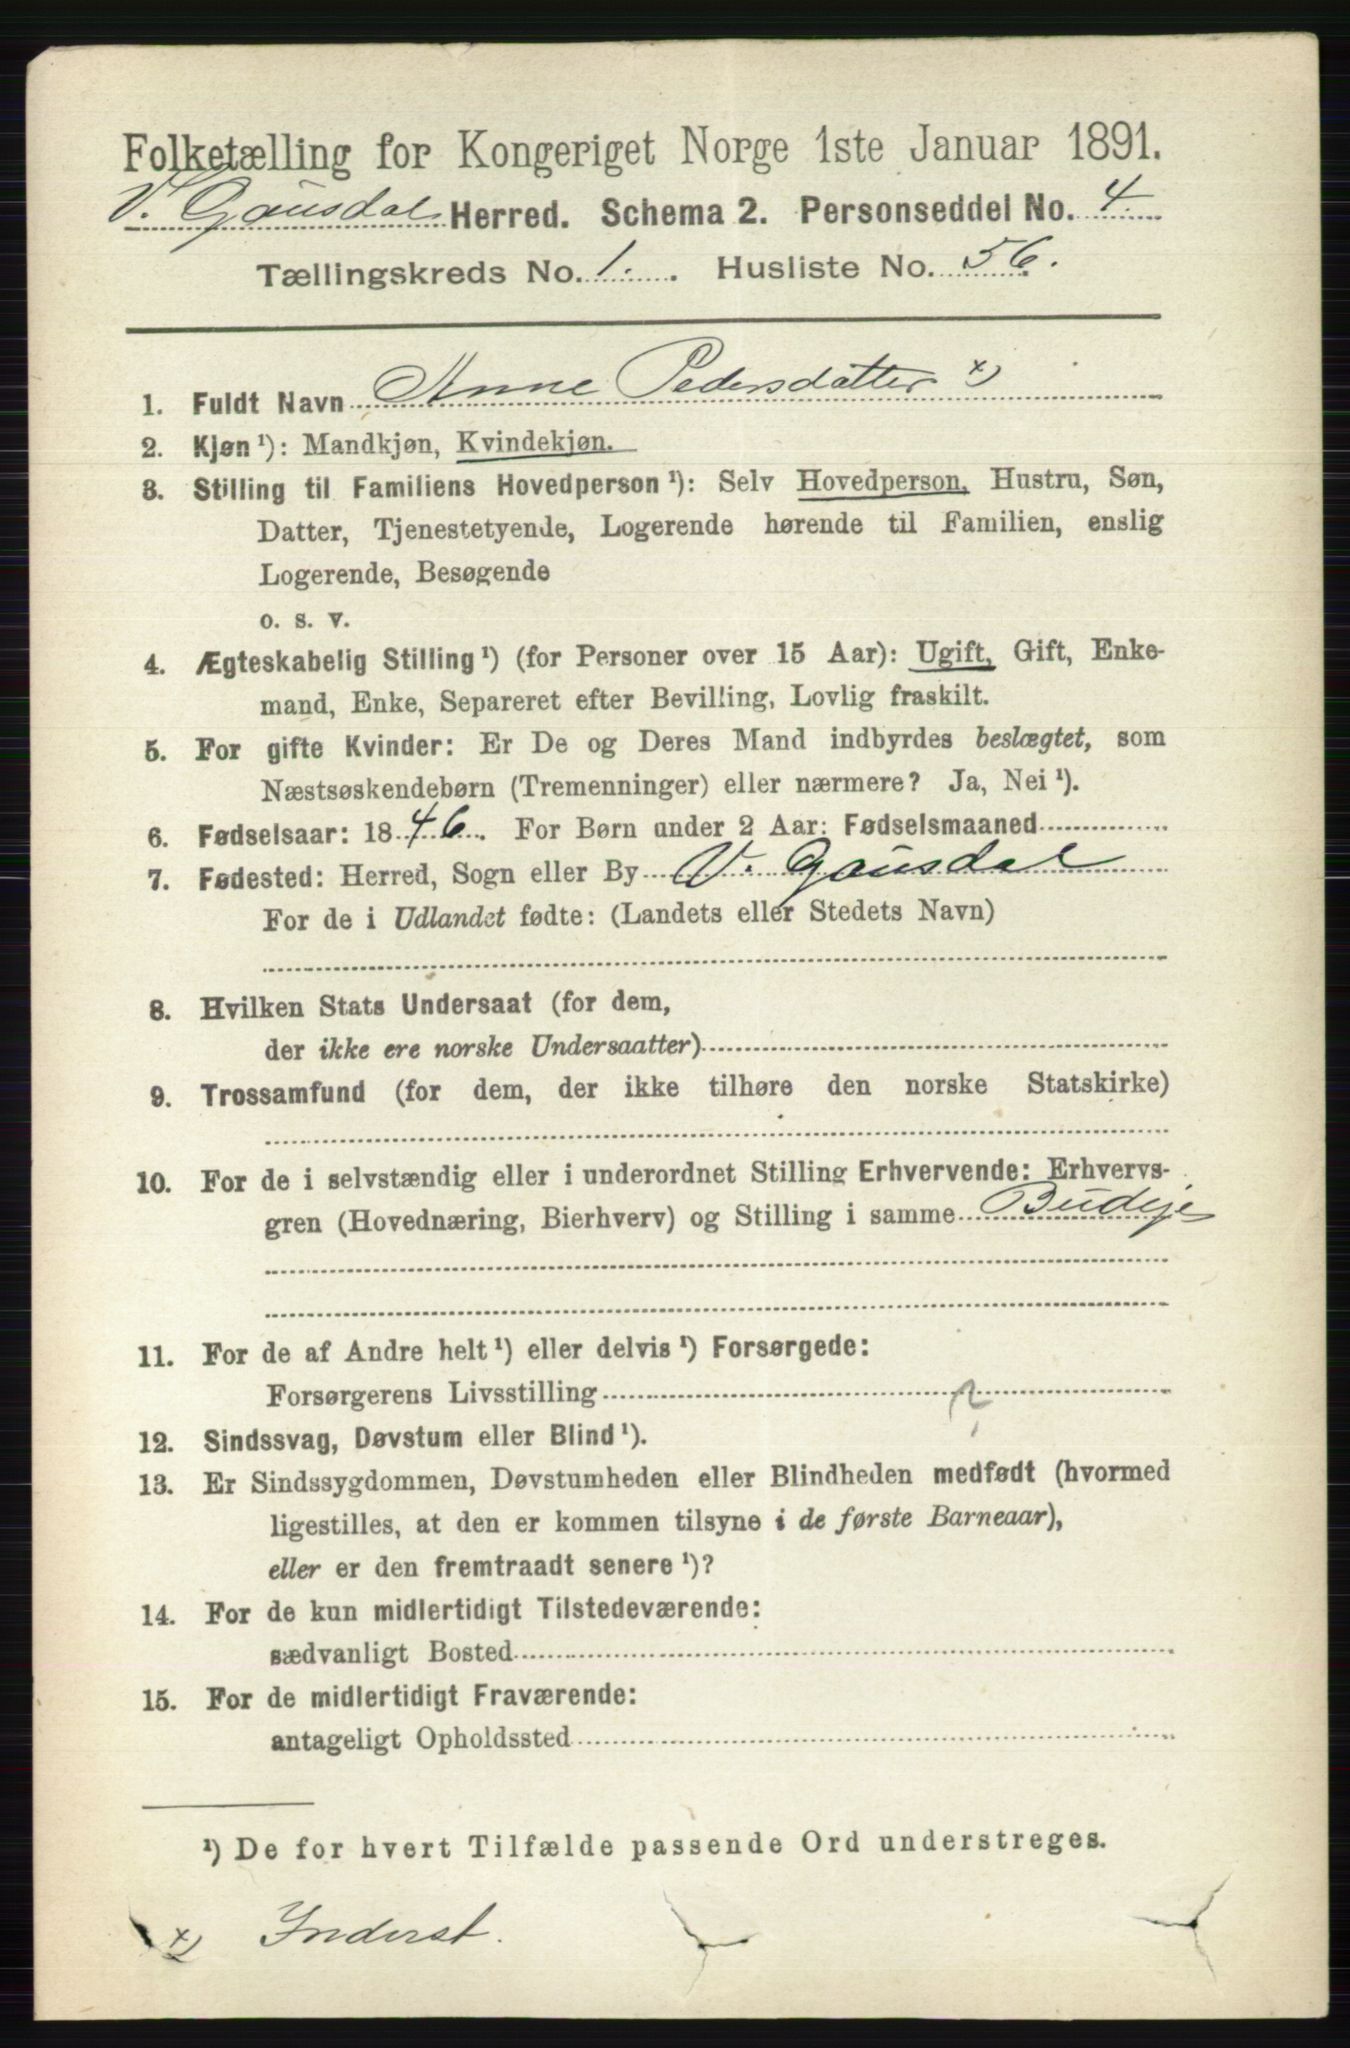 Folketælling for Kongeriget Norge 1ste Januar 1891.
V. Gausdal Herred. Schema 2. Personseddel No. 4.
Tællingskreds No. 1. Husliste No. 56.
1. Fuldt Navn Anne Pedersdatter x)
2. Kjøn ¹): Mandkjøn, Kvindekjøn.
3. Stilling til Familiens Hovedperson ¹): Selv Hovedperson, Hustru, Søn,
Datter, Tjenestetyende, Logerende hørende til Familien, enslig
Logerende, Besøgende
o. s. v.
4. Ægteskabelig Stilling ¹) (for Personer over 15 Aar): Ugift, Gift, Enke-
mand, Enke, Separeret efter Bevilling, Lovlig fraskilt.
5. For gifte Kvinder: Er De og Deres Mand indbyrdes beslægtet, som
Næstsøskendebørn (Tremenninger) eller nærmere? Ja, Nei ¹).
6. Fødselsaar: 1846. For Børn under 2 Aar: Fødselsmaaned
7. Fødested: Herred, Sogn eller By V. Gausdal
For de i Udlandet fødte: (Landets eller Stedets Navn)
8. Hvilken Stats Undersaat (for dem,
der ikke ere norske Undersaatter)
9. Trossamfund (for dem, der ikke tilhøre den norske Statskirke)
10. For de i selvstændig eller i underordnet Stilling Erhvervende: Erhvervs-
gren (Hovednæring, Bierhverv) og Stilling i samme Budeje
11. For de af Andre helt ¹) eller delvis ¹) Forsørgede:
Forsørgerens Livsstilling ?
12. Sindssvag, Døvstum eller Blind ¹).
13. Er Sindssygdommen, Døvstumheden eller Blindheden medfødt (hvormed
ligestilles, at den er kommen tilsyne i de første Barneaar),
eller er den fremtraadt senere ¹)?
14. For de kun midlertidigt Tilstedeværende:
sædvanligt Bosted
15. For de midlertidigt Fraværende:
antageligt Opholdssted
¹) De for hvert Tilfælde passende Ord understreges.
x) Inderst.